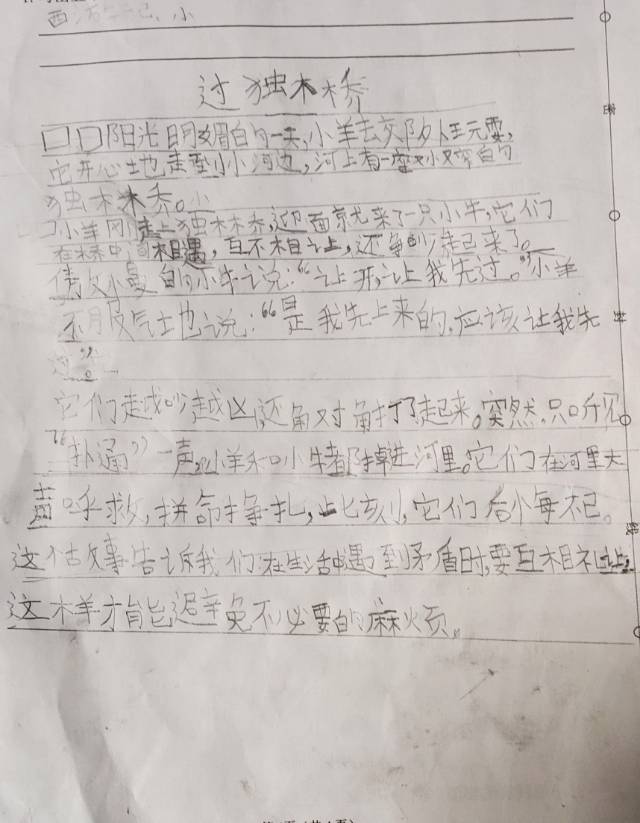 过独木桥
口口阳光明媚的一天,小羊去郊外玩耍,
它开心地走到小河边,河上有一座又小又窄的
独木桥。小
小羊刚走上独木桥,迎面就来了一只小牛,它们
在木桥中间相遇,互不相让,还争吵起来了。
傲慢的小牛说:“让开,让我先过。”小羊
不服气地说:“是我先上来的,应该让我先
过”。
它们越吵越凶,还角对角打了起来。突然,只听见
“扑通”一声,小羊和小牛都掉进河里。它们在河里大
喊呼救,拼命挣扎,此刻,它们后悔不已。
这个故事告诉我们在生活中遇到矛盾时,要互相礼让,
这样才能避免不必要的麻烦。